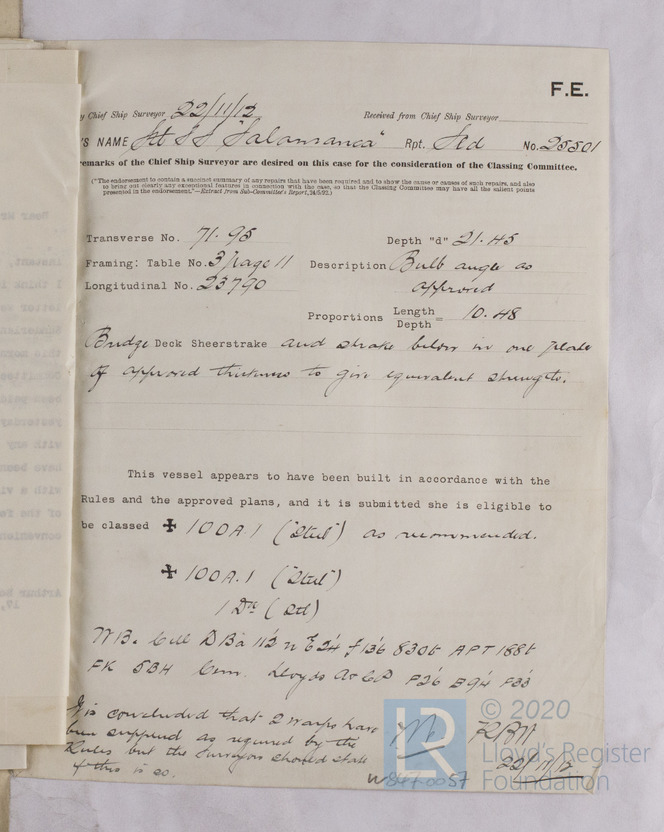 F.E.
y Chief Ship Surveyor 22/11/12 Received from Chief Ship Surveyor
'S NAME St SS "Salamanca" Rpt. Sld No. 25501
remarks of the Chief Ship Surveyor are desired on this case for the consideration of the Classing Committee.
("The endorsement to contain a succinct summary of any repairs that have been required and to show the cause or causes of such repairs, and also
to bring out clearly any exceptional features in connection with the case, so that the Classing Committee may have all the salient points
presented in the endorsement."—Extract from Sub-Committee's Report,
Transverse No. 71.95 Depth "d" 21.45
Framing: Table No. 3 page 11 Description Bulb angle as
approved
Longitudinal No. 23790
Proportions Length = 10.48
Depth
Bridge Deck Sheerstrake and strake below in one plate
of approved thickness to give equivalent strength.
This vessel appears to have been built in accordance with the
Rules and the approved plans, and it is submitted she is eligible to
be classed ✠ 100A.1 ("Steel") as recommended.
✠ 100A.1 ("Steel")
1 Dk (Stl)
WB. Cell DBa 112' u E 24' f 136' 830t APT 188t
FK 5BH Cem. Lloyds A&CP P26' B94' F33'
It is concluded that 2 warps have
been supplied as required by the
Rules but the Surveyors should state
if this is so.
22/11/12
W847-0057
LR
© 2020
Lloyd's Register
Foundation